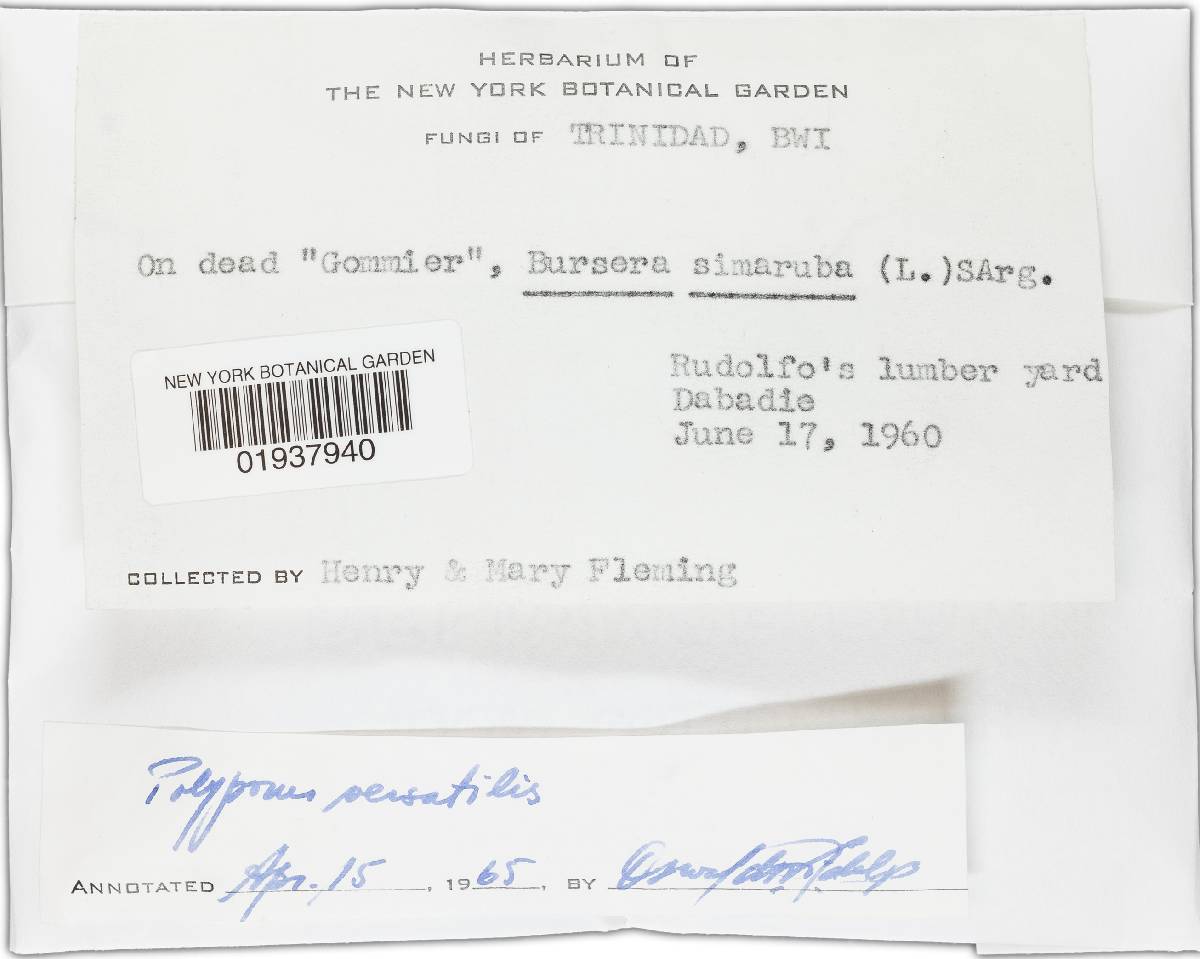 HERBARIUM OF
THE NEW YORK BOTANICAL GARDEN
FUNGI OF TRINIDAD, BWI
On dead "Gommier", Bursera simaruba (L.)SArg.
NEW YORK BOTANICAL GARDEN
01937940
Rudolfo's lumber yard
Dabadie
June 17, 1960
COLLECTED BY Henry & Mary Fleming
Polyporus versatilis
ANNOTATED Apr. 15, 1965, BY Oswaldo